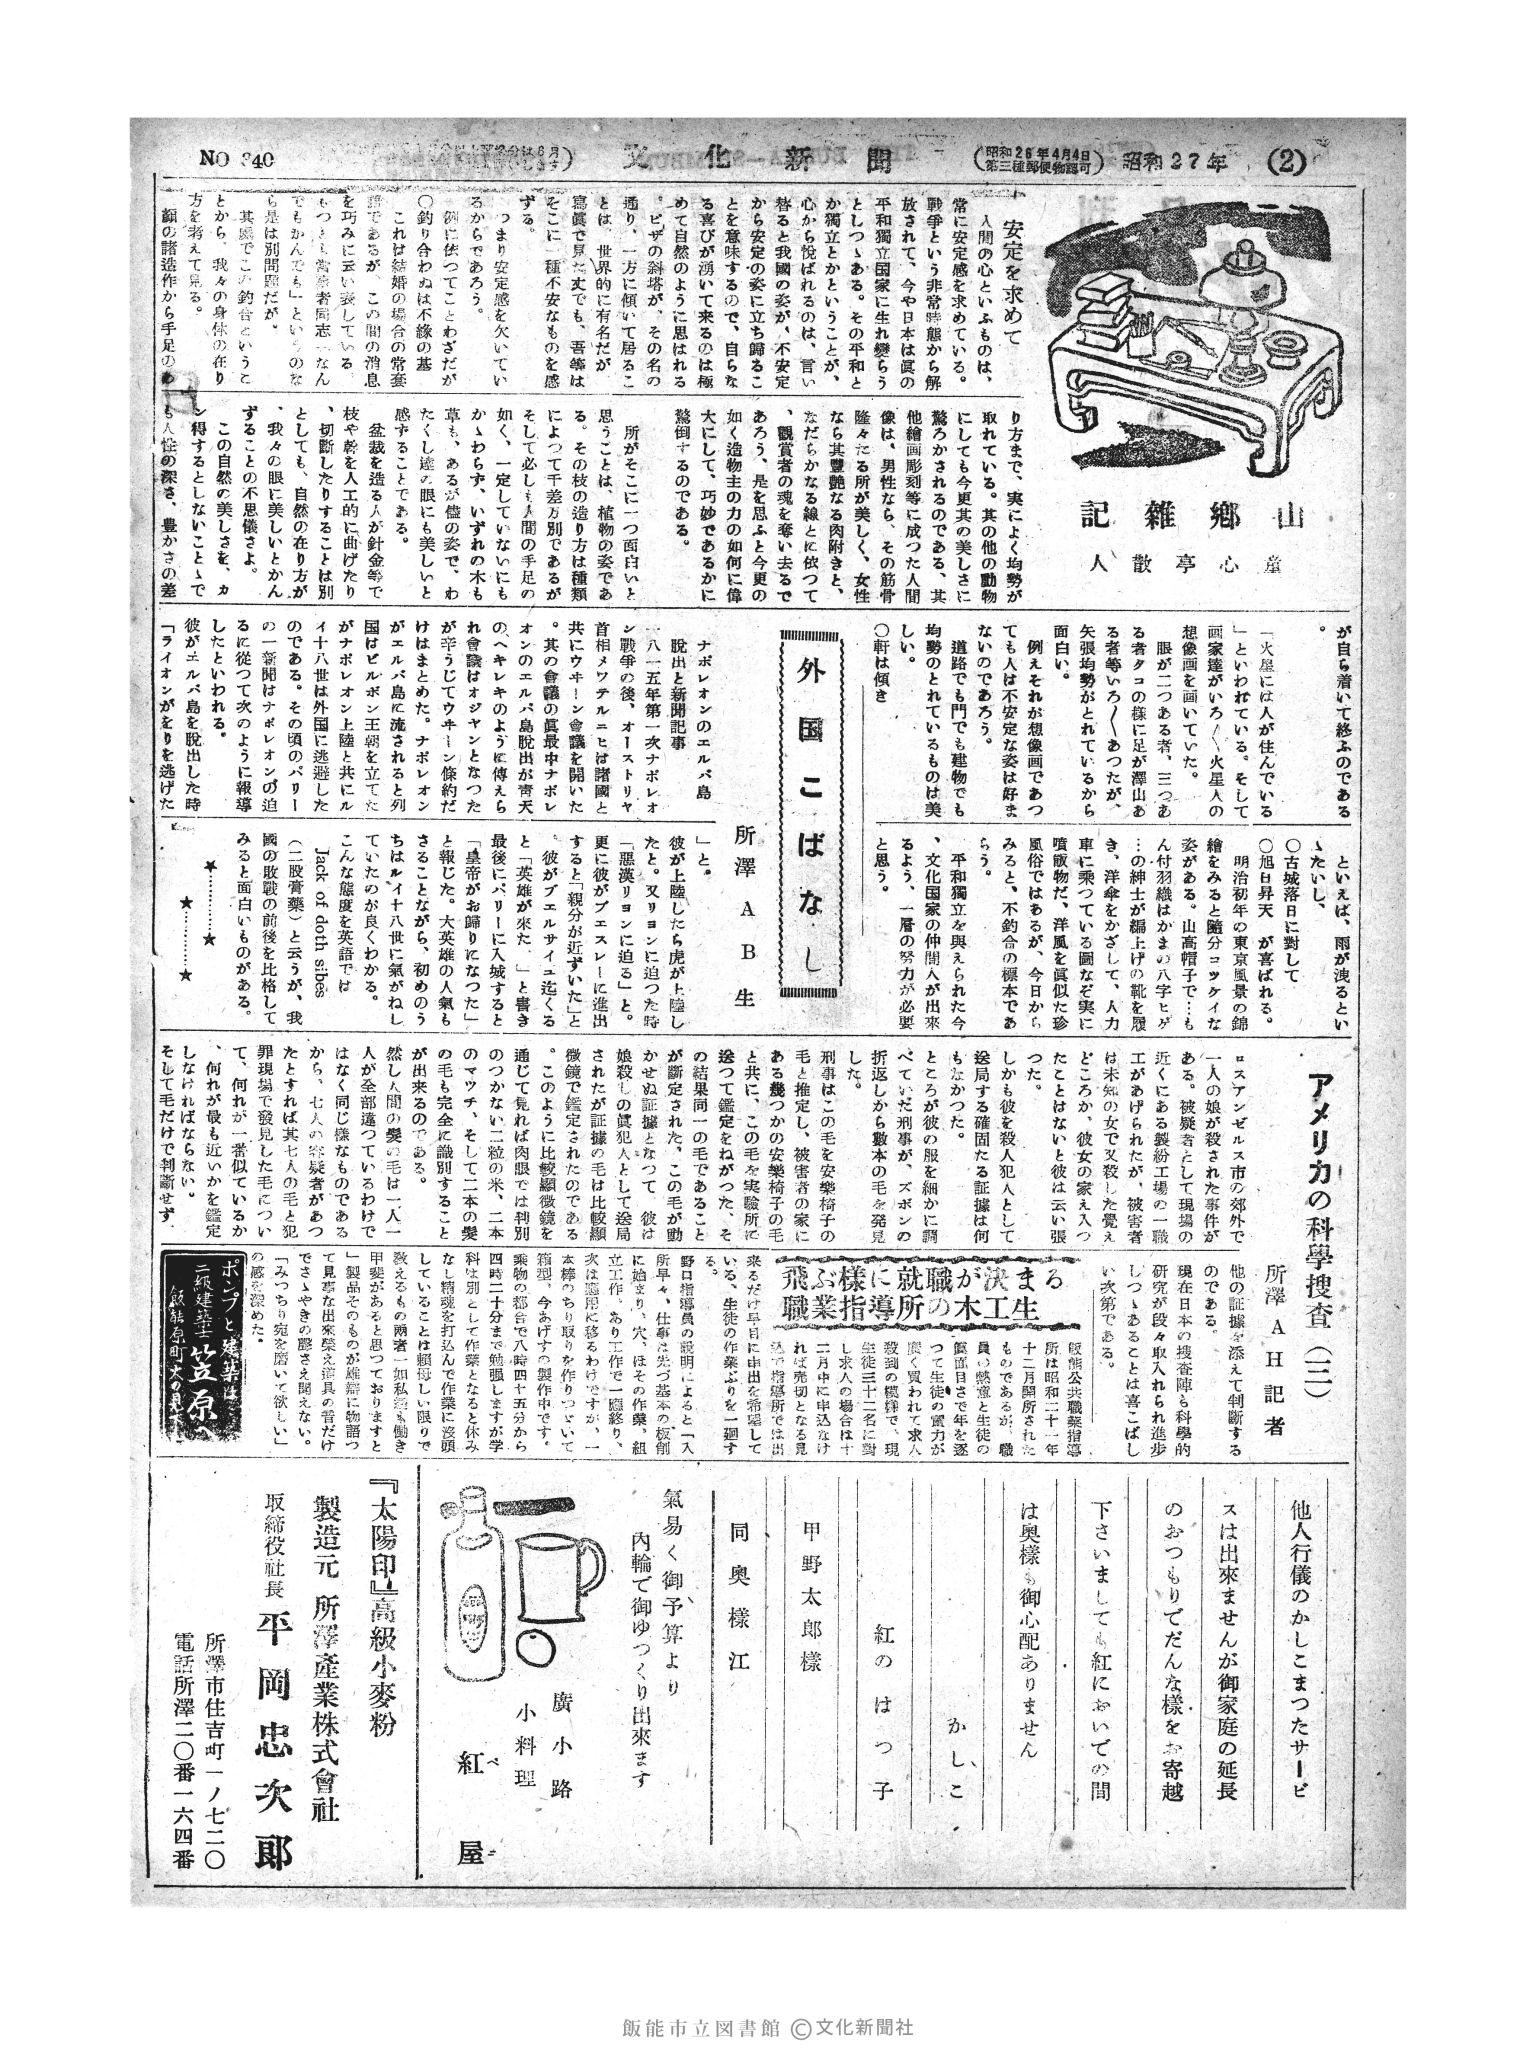 (2)
昭和27年
(昭和26年4月4日
第三種郵便物認可)
文化新聞
NO 340
山鄕雜記
童心亭散人
安定を求めて
人間の心といふものは、
常に安定感を求めている。
戰爭という非常時態から解
放されて、今や日本は眞の
平和獨立国家に生れ變らう
としつゝある。その平和と
か獨立とかということが、
心から悦ばれるのは、言い
替ると我國の姿が、不安定
から安定の姿に立ち歸るこ
とを意味するので、自らな
る喜びが湧いて来るのは極
めて自然のように思はれる
。ピザの斜塔が、その名の
通り、一方に傾いて居るこ
とは、世界的に有名だが、
寫眞で見た丈でも、吾等は
そこに一種不安なものを感
ずる。
つまり安定感を欠いてい
るからであろう。
例に依つてことわざだが
〇釣り合わぬは不縁の基
これは結婚の場合の常套
語であるが、この間の消息
を巧みに云い表している。
もつとも當事者同志「なん
でもかんでも」というのな
ら是は別問題だが。
其處でこの釣合というこ
とから、我々の身体の在り
方を考えて見る。
顔の諸造作から手足のあ
り方まで、実によく均勢が
取れている。其の他の動物
にしても今更其の美しさに
驚ろかされるのである、其
他繪画彫刻等に成つた人間
像は、男性なら、その筋骨
隆々たる所が美しく、女性
なら其豐艶なる肉附きと、
なだらかなる線とに依つて
、觀賞者の魂を奪い去るで
あろう、是を思ふと今更の
如く造物主の力の如何に偉
大にして、巧妙であるかに
驚倒するのである。
所がそこに一つ面白いと
思うことは、植物の姿であ
る。その枝の造り方は種類
によつて千差万別であるが
そして必しも人間の手足の
如く、一定していないにも
かゝわらず、いずれの木も
草も、あるが儘の姿で、わ
たくし達の眼にも美しいと
感ずることである。
盆栽を造る人が針金等で
枝や幹を人工的に曲げたり
、切斷したりすることは別
としても、自然の在り方が
、我々の眼に美しいとかん
ずることの不思儀さよ。
この自然の美しさを、カ
ン得するとしないことゝで
も人性の深さ、豊かさの差
が自ら着いて終ふのである
。
「火星には人が住んでいる
」といわれている。そして
画家達がいろ〱火星人の
想像画を画いていた。
眼が二つある者、三つあ
る者タコの樣に足が澤山あ
る者等いろ〱あつたが、
矢張均勢がとれているから
面白い。
例えそれが想像画であつ
ても人は不安定な姿は好ま
ないのであろう。
道路でも門でも建物でも
均勢のとれているものは美
しい。
〇軒は傾き
といえば、雨が洩るとい
ゝたいし、
〇古城落日に對して
〇旭日昇天 が喜ばれる。
明治初年の東京風景の錦
繪をみると隨分コッケイな
姿がある。山高帽子で…も
ん付羽織はかまの八字ヒゲ
…の紳士が編上げの靴を履
き、洋傘をかざして、人力
車に乗つている圖なぞ実に
噴飯物だ、洋風を眞似た珍
風俗ではあるが、今日から
みると、不釣合の標本であ
らう。
平和獨立を與えられた今
、文化国家の仲間入が出來
るよう、一層の努力が必要
と思う。
外国こばなし
所澤AB生
ナポレオンのエルバ島
脫出と新聞記事
一八一五年第一次ナポレオ
ン戰爭の後、オーストリヤ
首相メツテルニヒは諸國と
共にウヰーン會議を開いた
。其の會議の眞最中ナポレ
オンのエルバ島脫出が靑天
のヘキレキのように傳えら
れ會議はオジャンとなつた
が辛うじてウヰーン條約だ
けはまとめた。ナポレオン
がエルバ島に流されると列
国はビルボン王朝を立てた
がナポレオン上陸と共にル
イ十八世は外国に逃避した
のである。その頃のパリー
の一新聞はナポレオンの迫
るに從つて次のように報導
したといわれる。
彼がエルバ島を脫出した時
「ライオンがをりを逃げた
」と。
彼が上陸したら虎が上陸し
たと。又リヨンに迫つた時
「惡漢リヨンに迫る」と。
更に彼がブエスレーに進出
すると「親分が近ずいた」と
彼がブエルサイユ迄くる
と「英雄が來た。」と書き
最後にパリーに入城すると
「皇帝がお歸りになつた」
と報じた。大英雄の人氣も
さることながら、初めのう
ちはルイ十八世に氣がねし
ていたのが良くわかる。
こんな態度を英語では
Jack of doth sibes
(二股膏藥)と云うが、我
國の敗戰の前後を比格して
みると面白いものがある。
★…………★
★…………★
アメリカの科學捜査(三)
所澤AH記者
ロスアンゼルス市の郊外で
一人の娘が殺された事件が
ある。被疑者として現場の
近くにある製紛工場の一職
工があげられたが、被害者
は未知の女で又殺した覺え
どころか、彼女の家え入つ
たことはないと彼は云い張
つた。
しかも彼を殺人犯人として
送局する確固たる証據は何
もなかつた。
ところが彼の服を細かに調
べていた刑事が、ズボンの
折返しから數本の毛を発見
した。
刑事はこの毛を安樂椅子の
毛と推定し、被害者の家に
ある幾つかの安樂椅子の毛
と共に、この毛を実驗所に
送つて鑑定をねがつた、そ
の結果同一の毛であること
が斷定された、この毛が動
かせぬ証據となつて 彼は
娘殺しの眞犯人として送局
されたが証據の毛は比較顯
微鏡で鑑定されたのである
。このように比較顯微鏡を
通じて見れば肉眼では判別
のつかない二粒の米、二本
のマツチ、そして二本の髮
の毛も完全に識別すること
が出來るのである。
然し人間の髮の毛は一人一
人が全部違つているわけで
はなく同じ樣なものである
から、七人の容疑者があつ
たとすれば其七人の毛と犯
罪現場で發見した毛につい
て、何れが一番似ているか
、何れが最も近いかを鑑定
しなければならない。
そして毛だけで判斷せず、
他の証據を添えて判斷する
のである。
現在日本の捜査陣も科學的
研究が段々取入れられ進步
しつゝあることは喜こばし
い次第である。
飛ぶ樣に就職が決まる
職業指導所の木工生
飯能公共職業指導
所は昭和二十一年
十二月開所された
ものであるが、職
員の熱意と生徒の
眞面目さで年を逐
つて生徒の實力が
廣く買われて求人
殺到の模樣で、現
生徒三十二名に對
し求人の場合は十
二月中に申込なけ
れば売切となる見
込で指導所では出
来るだけ早目に申出を希望して
いる、生徒の作業ぶりを一廻す
る。
野口指導員の説明によると「入
所早々、仕事は先づ基本の板削
に始まり、穴、ほその作業、組
立工作、あり工作で一應終り、
次は應用に移るわけですが、一
本棒のちり取りを作りつゞいて
箱型、今あげすの製作中です。
乘物の都合で八時四十五分から
四時二十分まで勉强しますが学
科は別として作業となると休み
なし精魂を打込んで作業に沒頭
していることは賴母しい限りで
教えるもの兩者一如私達も働き
甲斐があると思つておりますと
」製品そのものが雄辯に物語つ
て見事な出來榮え道具の音だけ
でさゝやきの聲さえ聞えない。
「みつちり宛を磨いて欲しい」
の感を深めた。
ポンプと建築は
二級建築士 笠原へ
飯能原町
他人行儀のかしこまつたサービ
スは出來ませんが御家庭の延長
のおつもりでだんな樣をお寄越
下さいましても紅においでの間
は奥樣も御心配ありません
かしこ
紅のはつ子
甲野太郎樣
同奥樣江
氣易く御予算より
内輪で御ゆつくり出來ます
廣小路
小料理
紅屋
べに
『太陽印』高級小麥粉
製造元 所澤產業株式會社
取締役社長 平岡忠次郞
所澤市住吉町一ノ七二〇
電話所澤二〇番一六四番
飯能市立図書館 ©文化新聞社